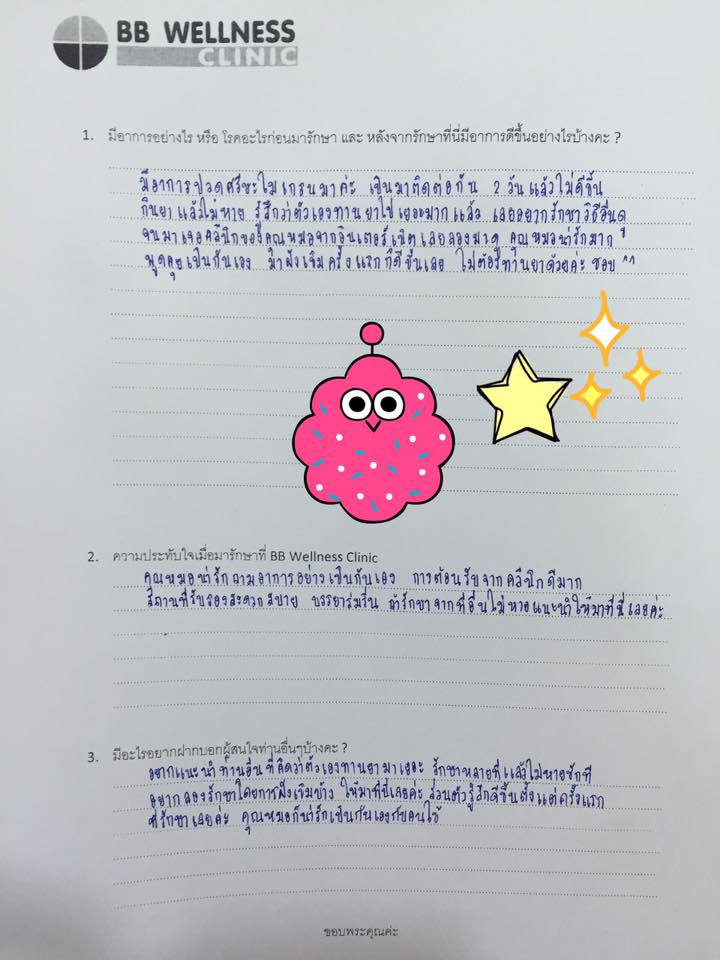 BB WELLNESS
CLINIC
1. มีอาการอย่างไร หรือ โรคอะไรก่อนมารักษา และ หลังจากรักษาที่นี่มีอาการดีขึ้นอย่างไรบ้างคะ ?
มีอาการปวดศรีษะไมเกรนมาค่ะ เป็นมาติดต่อกัน 2 วันแล้วไม่ดีขึ้น
กินยาแล้วไม่หาย รู้สึกว่าตัวเองทานยาไปเยอะมากแล้ว เลยอยากรักษาวิธีอื่นดู
จนมาเจอคลีนิกของคุณหมอจากอินเตอร์เน็ตเลยลองมาดู คุณหมอน่ารักมาก
พูดคุยเป็นกันเอง มาฝังเข็มครั้งแรกก็ดีขึ้นเลย ไม่ต้องทานยาด้วยค่ะ ชอบ ^^
2. ความประทับใจเมื่อมารักษาที่ BB Wellness Clinic
คุณหมอน่ารักถามอาการอย่างเป็นกันเอง การต้อนรับจากคลีนิกดีมาก
สถานที่รับรองสะดวกสบาย บรรยาร่มรื่น ถ้ารักษาจากที่อื่นไม่หายแนะนำให้มาที่นี่เลยค่ะ
3. มีอะไรอยากฝากบอกผู้สนใจท่านอื่นๆบ้างคะ ?
อยากแนะนำท่านอื่นที่คิดว่าตัวเองทานยามาเยอะ รักษาหลายที่แล้วไม่หายซักที
อยากลองรักษาโดยการฝังเข็มบ้าง ให้มาที่นี่เลยค่ะ ส่วนตัวรู้สึกดีขึ้นตั้งแต่ครั้งแรก
ที่รักษาเลยค่ะ คุณหมอก็น่ารักเป็นกันเองกับคนไข้
ขอบพระคุณค่ะ